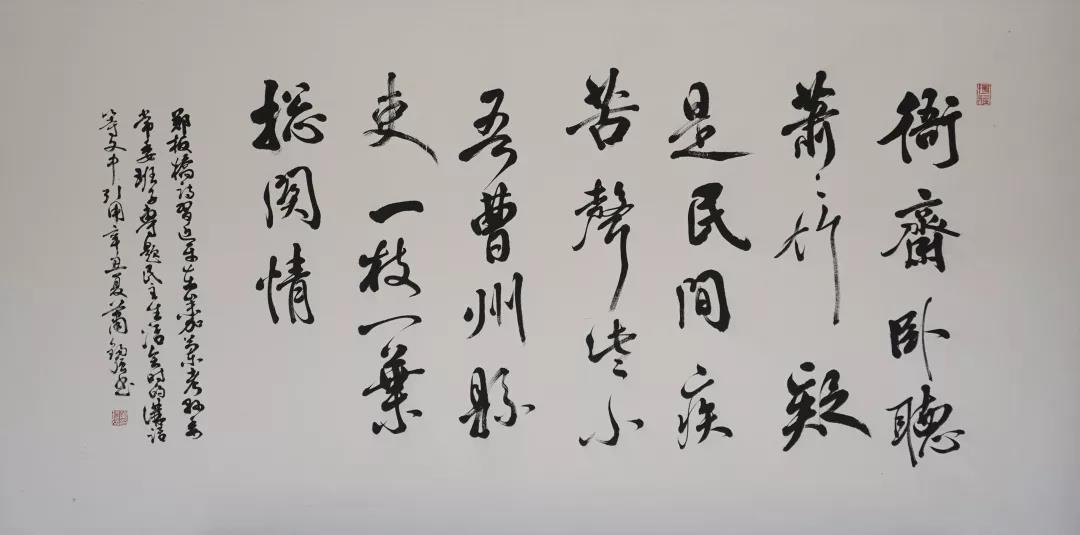 衙齋卧聽
蕭〻竹疑
是民間疾
苦聲些小
吾曹州縣
吏一枝一葉
總関情
鄭板橋詩習近平在參加蘭考縣委
常委班子專題民主生活會時的講話
等文中引用辛丑夏蕭書